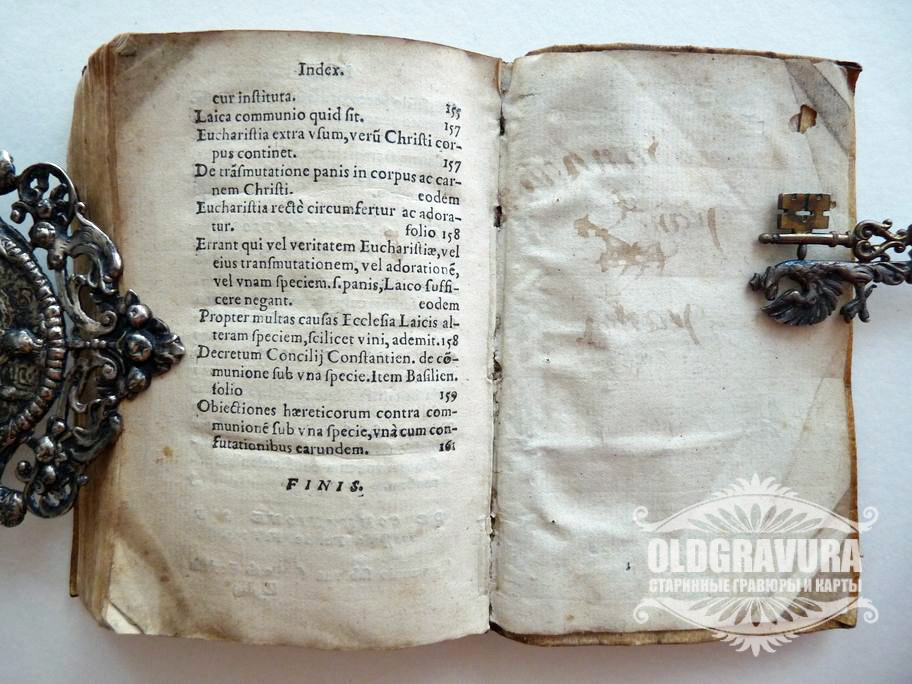 Index.
cur inſtituta. 155
Laica communio quid ſit. 157
Euchariſtia extra vſum, verũ Chriſti cor-
pus continet. 157
De trãſmutatione panis in corpus ac car-
nem Chriſti. eodem
Euchariſtia rectè circumfertur ac adora-
tur. folio 158
Errant qui vel veritatem Euchariſtiæ, vel
eius tranſmutationem, vel adorationẽ,
vel vnam ſpeciem. ſ. panis, Laico ſuffi-
cere negant. eodem
Propter multas cauſas Eccleſia Laicis al-
teram ſpeciem, ſcilicet vini, ademit. 158
Decretum Concilij Conſtantien. de cõ-
munione ſub vna ſpecie. Item Baſilien.
folio 159
Obiectiones hæreticorum contra com-
munionẽ ſub vna ſpecie, vnà cum con-
futationibus earundem. 161
FINIS.
OLDGRAVURA
СТАРИННЫЕ ГРАВЮРЫ И КАРТЫ